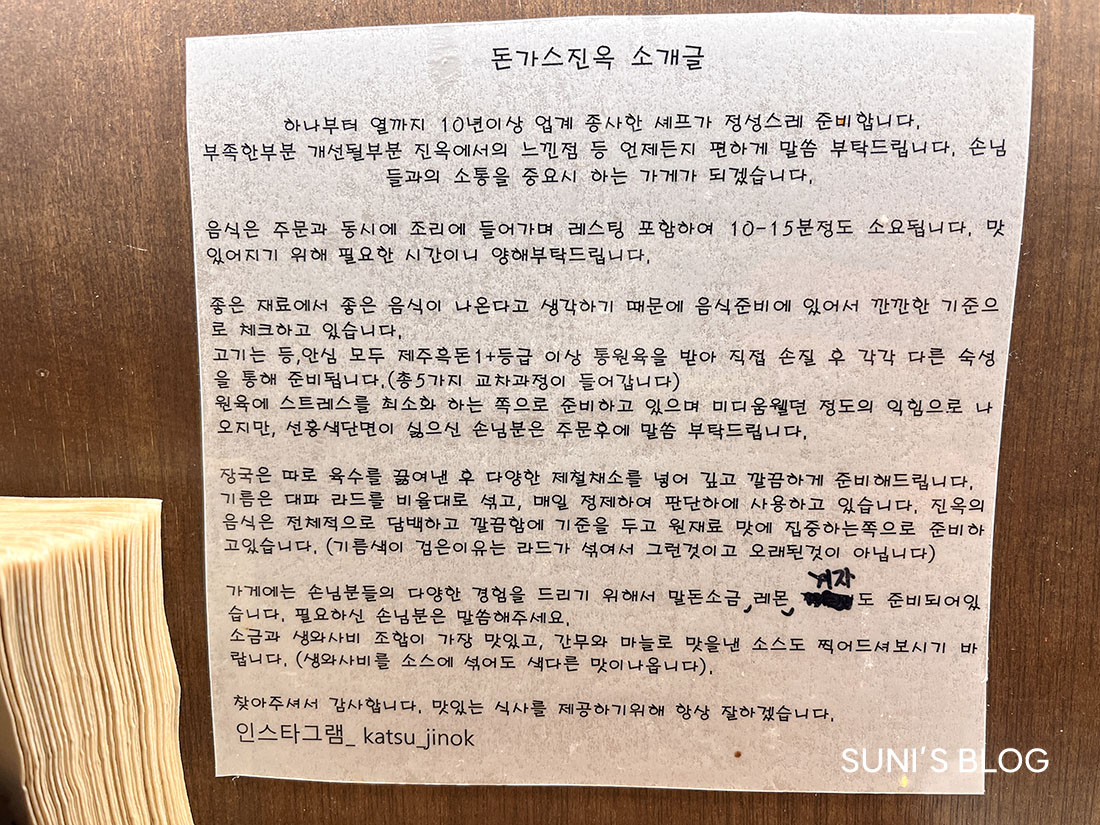 돈가스진옥 소개글
하나부터 열까지 10년이상 업계 종사한 셰프가 정성스레 준비합니다.
부족한부분 개선될부분 진옥에서의 느낀점 등 언제든지 편하게 말씀 부탁드립니다. 손님
들과의 소통을 중요시 하는 가게가 되겠습니다.
음식은 주문과 동시에 조리에 들어가며 레스팅 포함하여 10-15분정도 소요됩니다. 맛
있어지기 위해 필요한 시간이니 양해부탁드립니다.
좋은 재료에서 좋은 음식이 나온다고 생각하기 때문에 음식준비에 있어서 깐깐한 기준으
로 체크하고 있습니다.
고기는 등,안심 모두 제주흑돈1+등급 이상 통원육을 받아 직접 손질 후 각각 다른 숙성
을 통해 준비됩니다.(총5가지 교차과정이 들어갑니다)
원육에 스트레스를 최소화 하는 쪽으로 준비하고 있으며 미디움웰던 정도의 익힘으로 나
오지만, 선홍색단면이 싫으신 손님분은 주문후에 말씀 부탁드립니다.
장국은 따로 육수를 끓여낸 후 다양한 제철채소를 넣어 깊고 깔끔하게 준비해드립니다.
기름은 대파 라드를 비율대로 섞고, 매일 정제하여 판단하에 사용하고 있습니다. 진옥의
음식은 전체적으로 담백하고 깔끔함에 기준을 두고 원재료 맛에 집중하는쪽으로 준비하
고있습니다. (기름색이 검은이유는 라드가 섞여서 그런것이고 오래된것이 아닙니다)
가게에는 손님분들의 다양한 경험을 드리기 위해서 말돈소금, 레몬, 겨자도 준비되어있
습니다. 필요하신 손님분은 말씀해주세요.
소금과 생와사비 조합이 가장 맛있고, 간무와 마늘로 맛을낸 소스도 찍어드셔보시기 바
랍니다. (생와사비를 소스에 섞어도 색다른 맛이나옵니다).
찾아주셔서 감사합니다. 맛있는 식사를 제공하기위해 항상 잘하겠습니다.
인스타그램_ katsu_jinok
SUNI'S BLOG